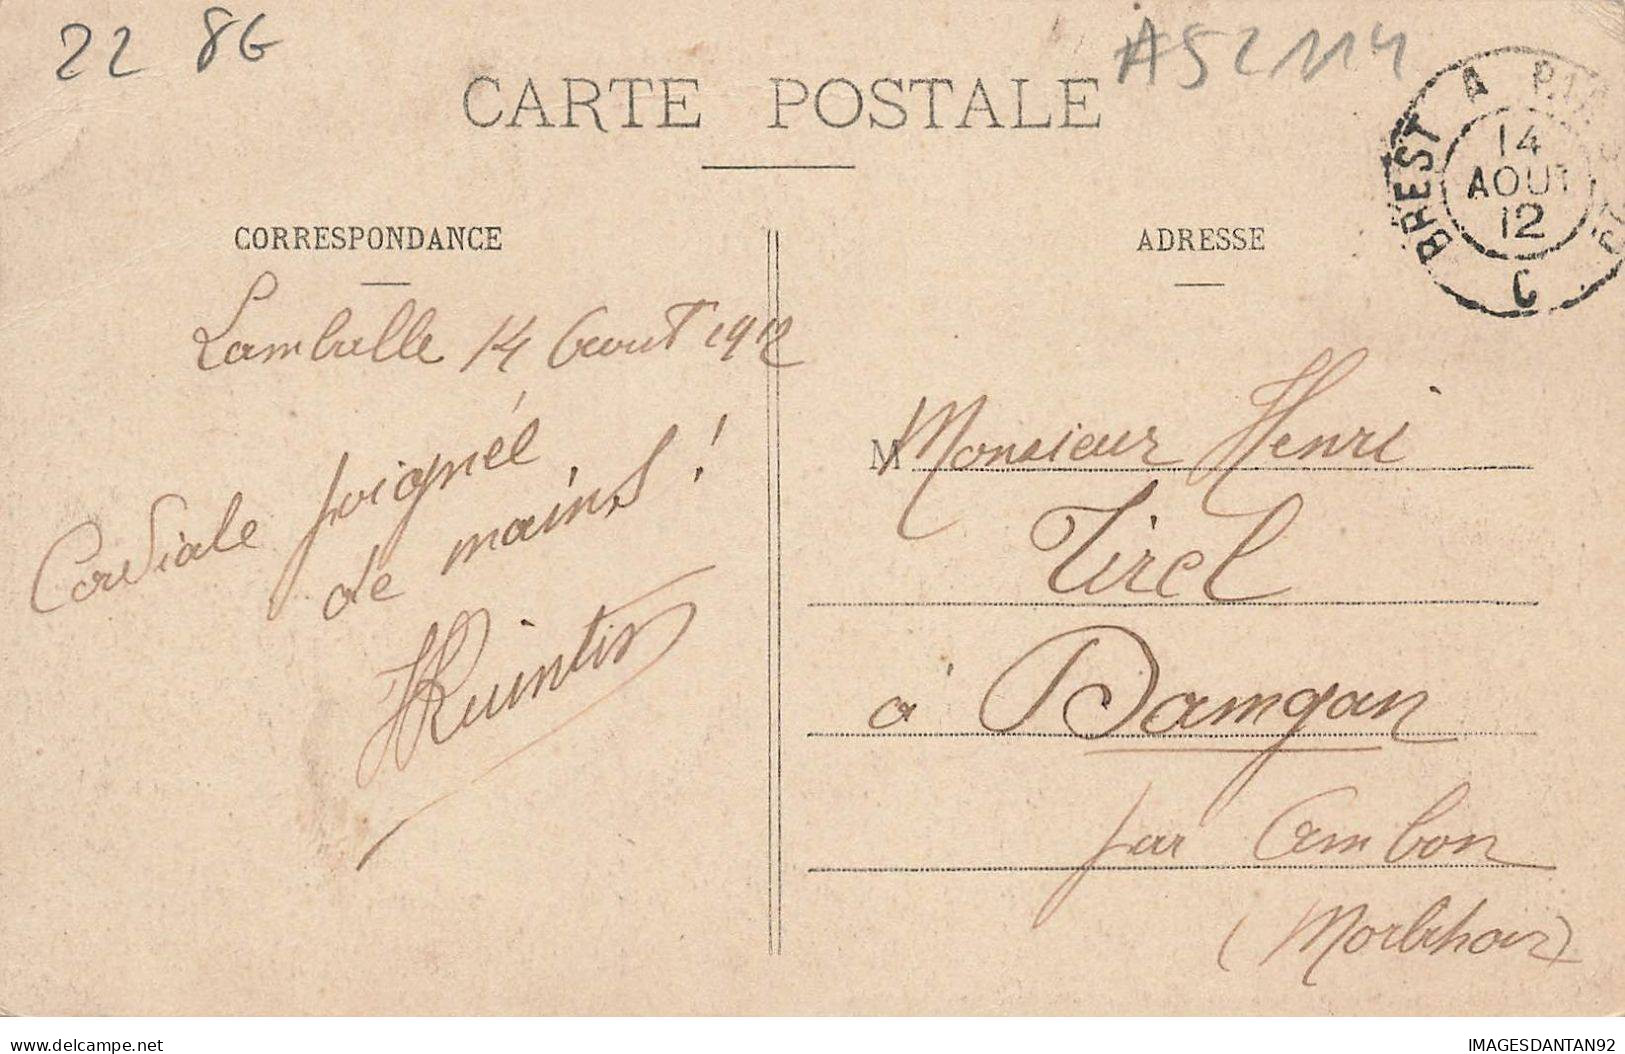 22 8G
A52114
CARTE POSTALE
BREST A
14
AOUT
12
CORRESPONDANCE
ADRESSE
Lamballe 14 Aout 1912
Cordiale poignée
de mains !
Quintin
M Monsieur Henri
Tirel
à Damgan
par Ambon
(Morbihan)
delcampe.net
IMAGESDANTAN92